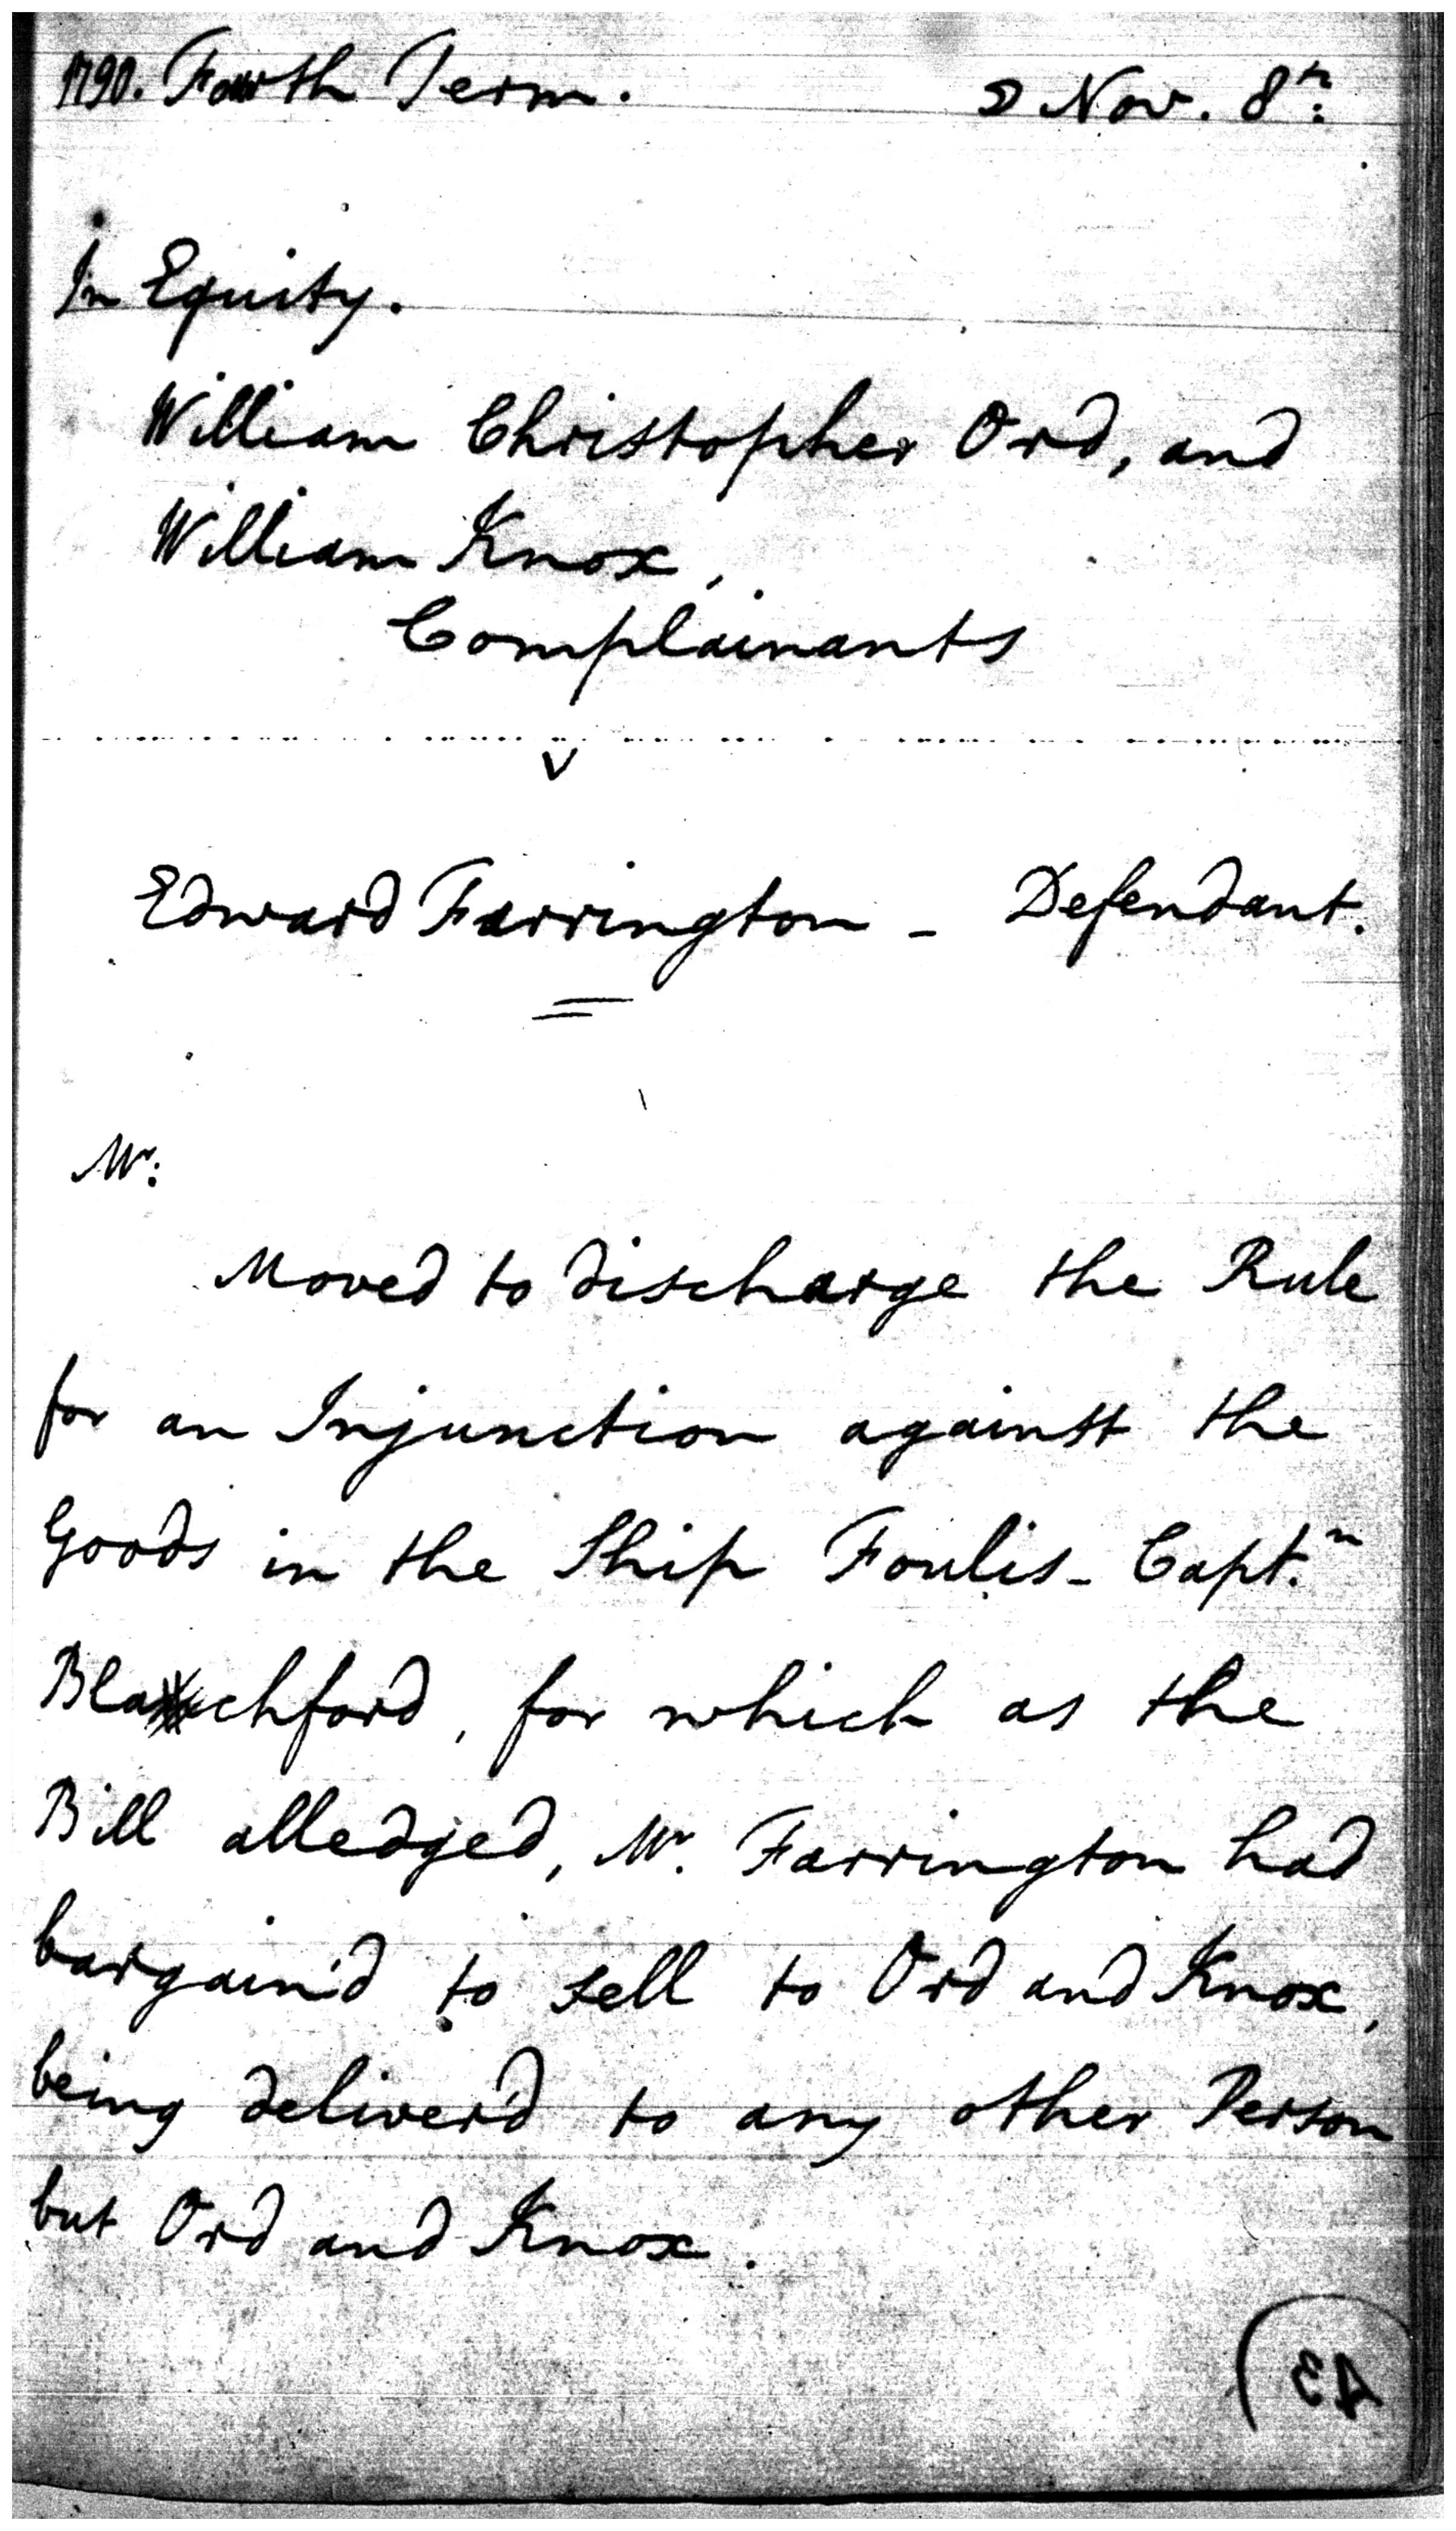 1790. Fourth Term. ☽ Nov. 8th:
In Equity.
William Christopher Ord, and
William Knox,
Complainants
v
Edward Farrington - Defendant.
Mr:
Moved to discharge the Rule
for an Injunction against the
Goods in the Ship Foulis - Capt.n
Blachford, for which as the
Bill alledged, Mr. Farrington had
bargain'd to sell to Ord and Knox,
being deliver'd to any other Person
but Ord and Knox.
43